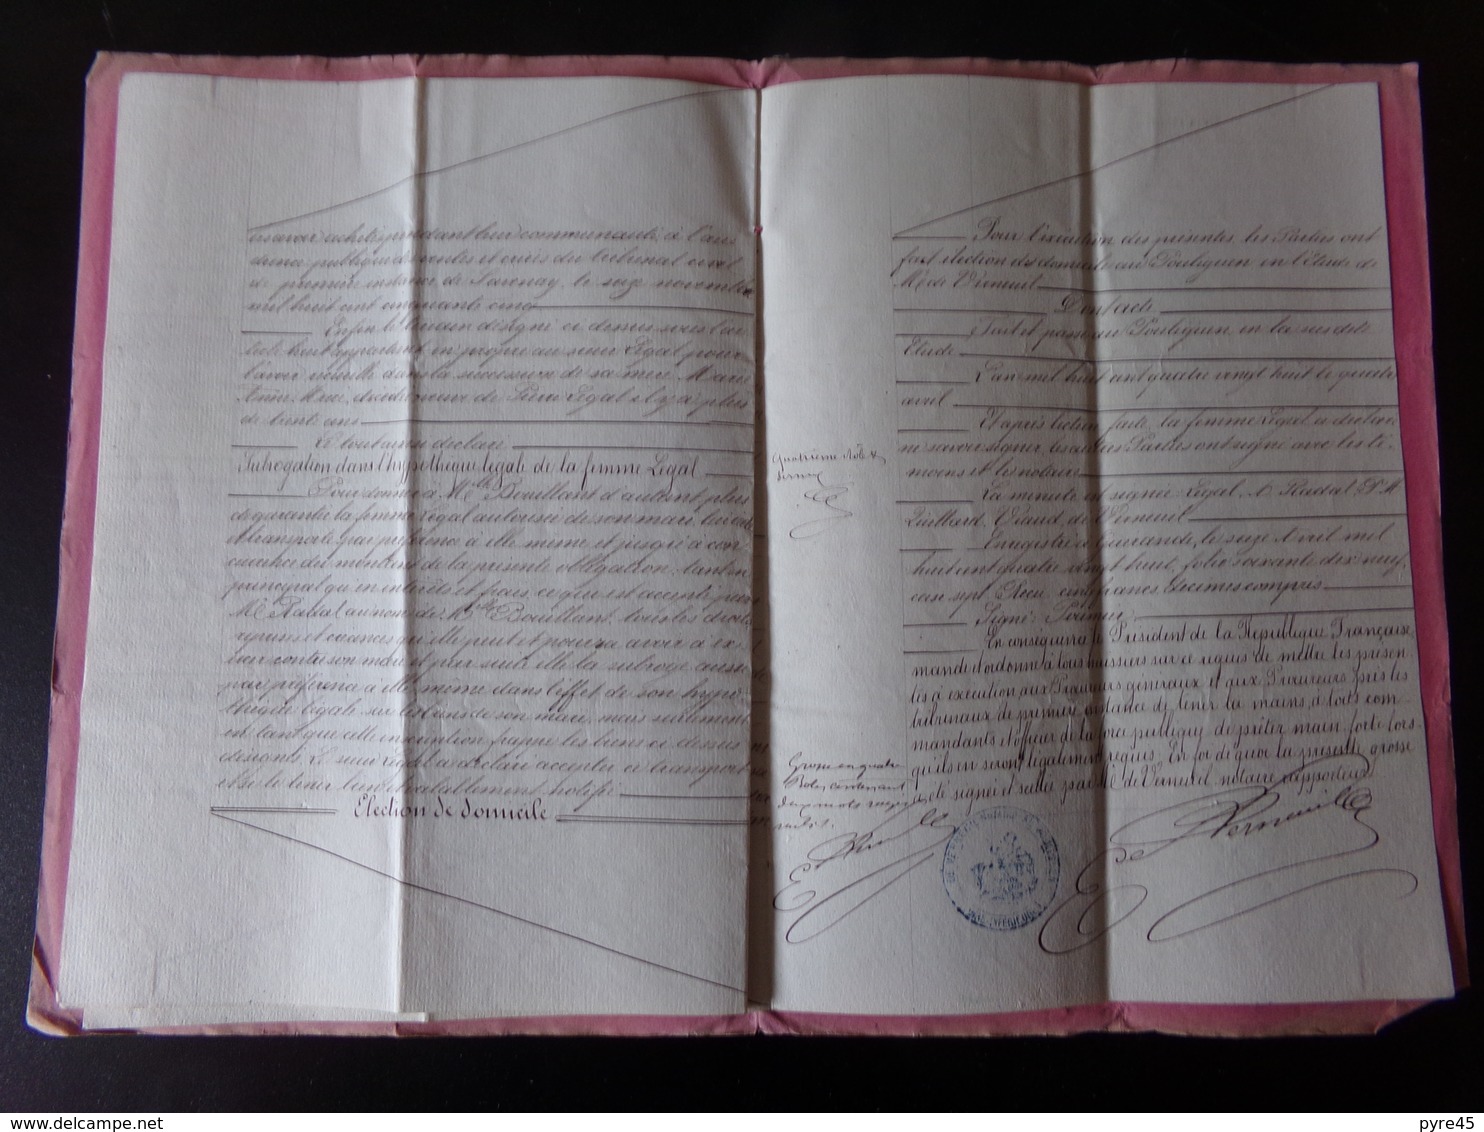 avoir acheté pendant leur communauté, à l'au
dience publique des ventes et criées du tribunal civil
de première instance de Savenay, le seize novembre
mil huit cent cinquante cinq
Enfin le terrain désigné ci dessus sous l'ar
ticle huit appartient en propre au sieur Légal pour
l'avoir recueilli dans la succession de sa mère Marie
décédée veuve de Pierre Légal il y a plus
de trente ans
Le tout ainsi déclaré
Subrogation dans l'hypothèque légale de la femme Légal
Pour donner à Mlle Bouillant d'autant plus
de garantie la femme Légal autorisée de son mari, lui cède
et transporte par préférence à elle même et jusqu'à con
currence du montant de la présente obligation, tant en
principal qu'en intérêts et frais, ce qui est accepté par
Mr Radal au nom de Mlle Bouillant, tous les droits
reprises et créances qu'elle peut et pourra avoir à ex
ercer contre son mari et par suite elle la subroge aussi
par préférence à elle même dans l'effet de son hypo
thèque légale sur les biens de son mari, mais seulement
en tant que cette inscription frappe les biens ci dessus
désignés Le sieur Légal a déclaré accepter ce transport
et se le tenir bien et valablement notifié
Election de domicile
Quatrième Rôle
Grosse en quatre
Rôles contenant
deux mots rayés
nuls.
Pour l'exécution des présentes les Parties ont
fait élection de domicile au Pouliguen en l'Etude de
Me de Verneuil
Dont acte
Fait et passé au Pouliguen en la susdite
Etude
L'an mil huit cent quatre vingt huit le quatre
avril
Et après lecture faite, la femme Légal a déclaré
ne savoir signer, les autres Parties ont signé avec les té
moins et les notaire
La minute est signée Légal, A. Radal,
Viaud, de Verneuil
Enregistré à Guérande, le seize Avril mil
huit cent quatre vingt huit, folio soixante dix neuf,
case sept. Reçu cinq francs, décimes compris
Signé:
En conséquence le Président de la République Française
mande et ordonne à tous huissiers sur ce requis de mettre les présen
tes à exécution aux Procureurs généraux et aux Procureurs près les
tribunaux de première instance de tenir la main, à tous com
mandants et officiers de la force publique de prêter main forte lors
qu'ils en seront légalement requis. En foi de quoi la présente grosse
a été signée et scellée par Me de Verneuil notaire rapporteur
de Verneuil
pyre45